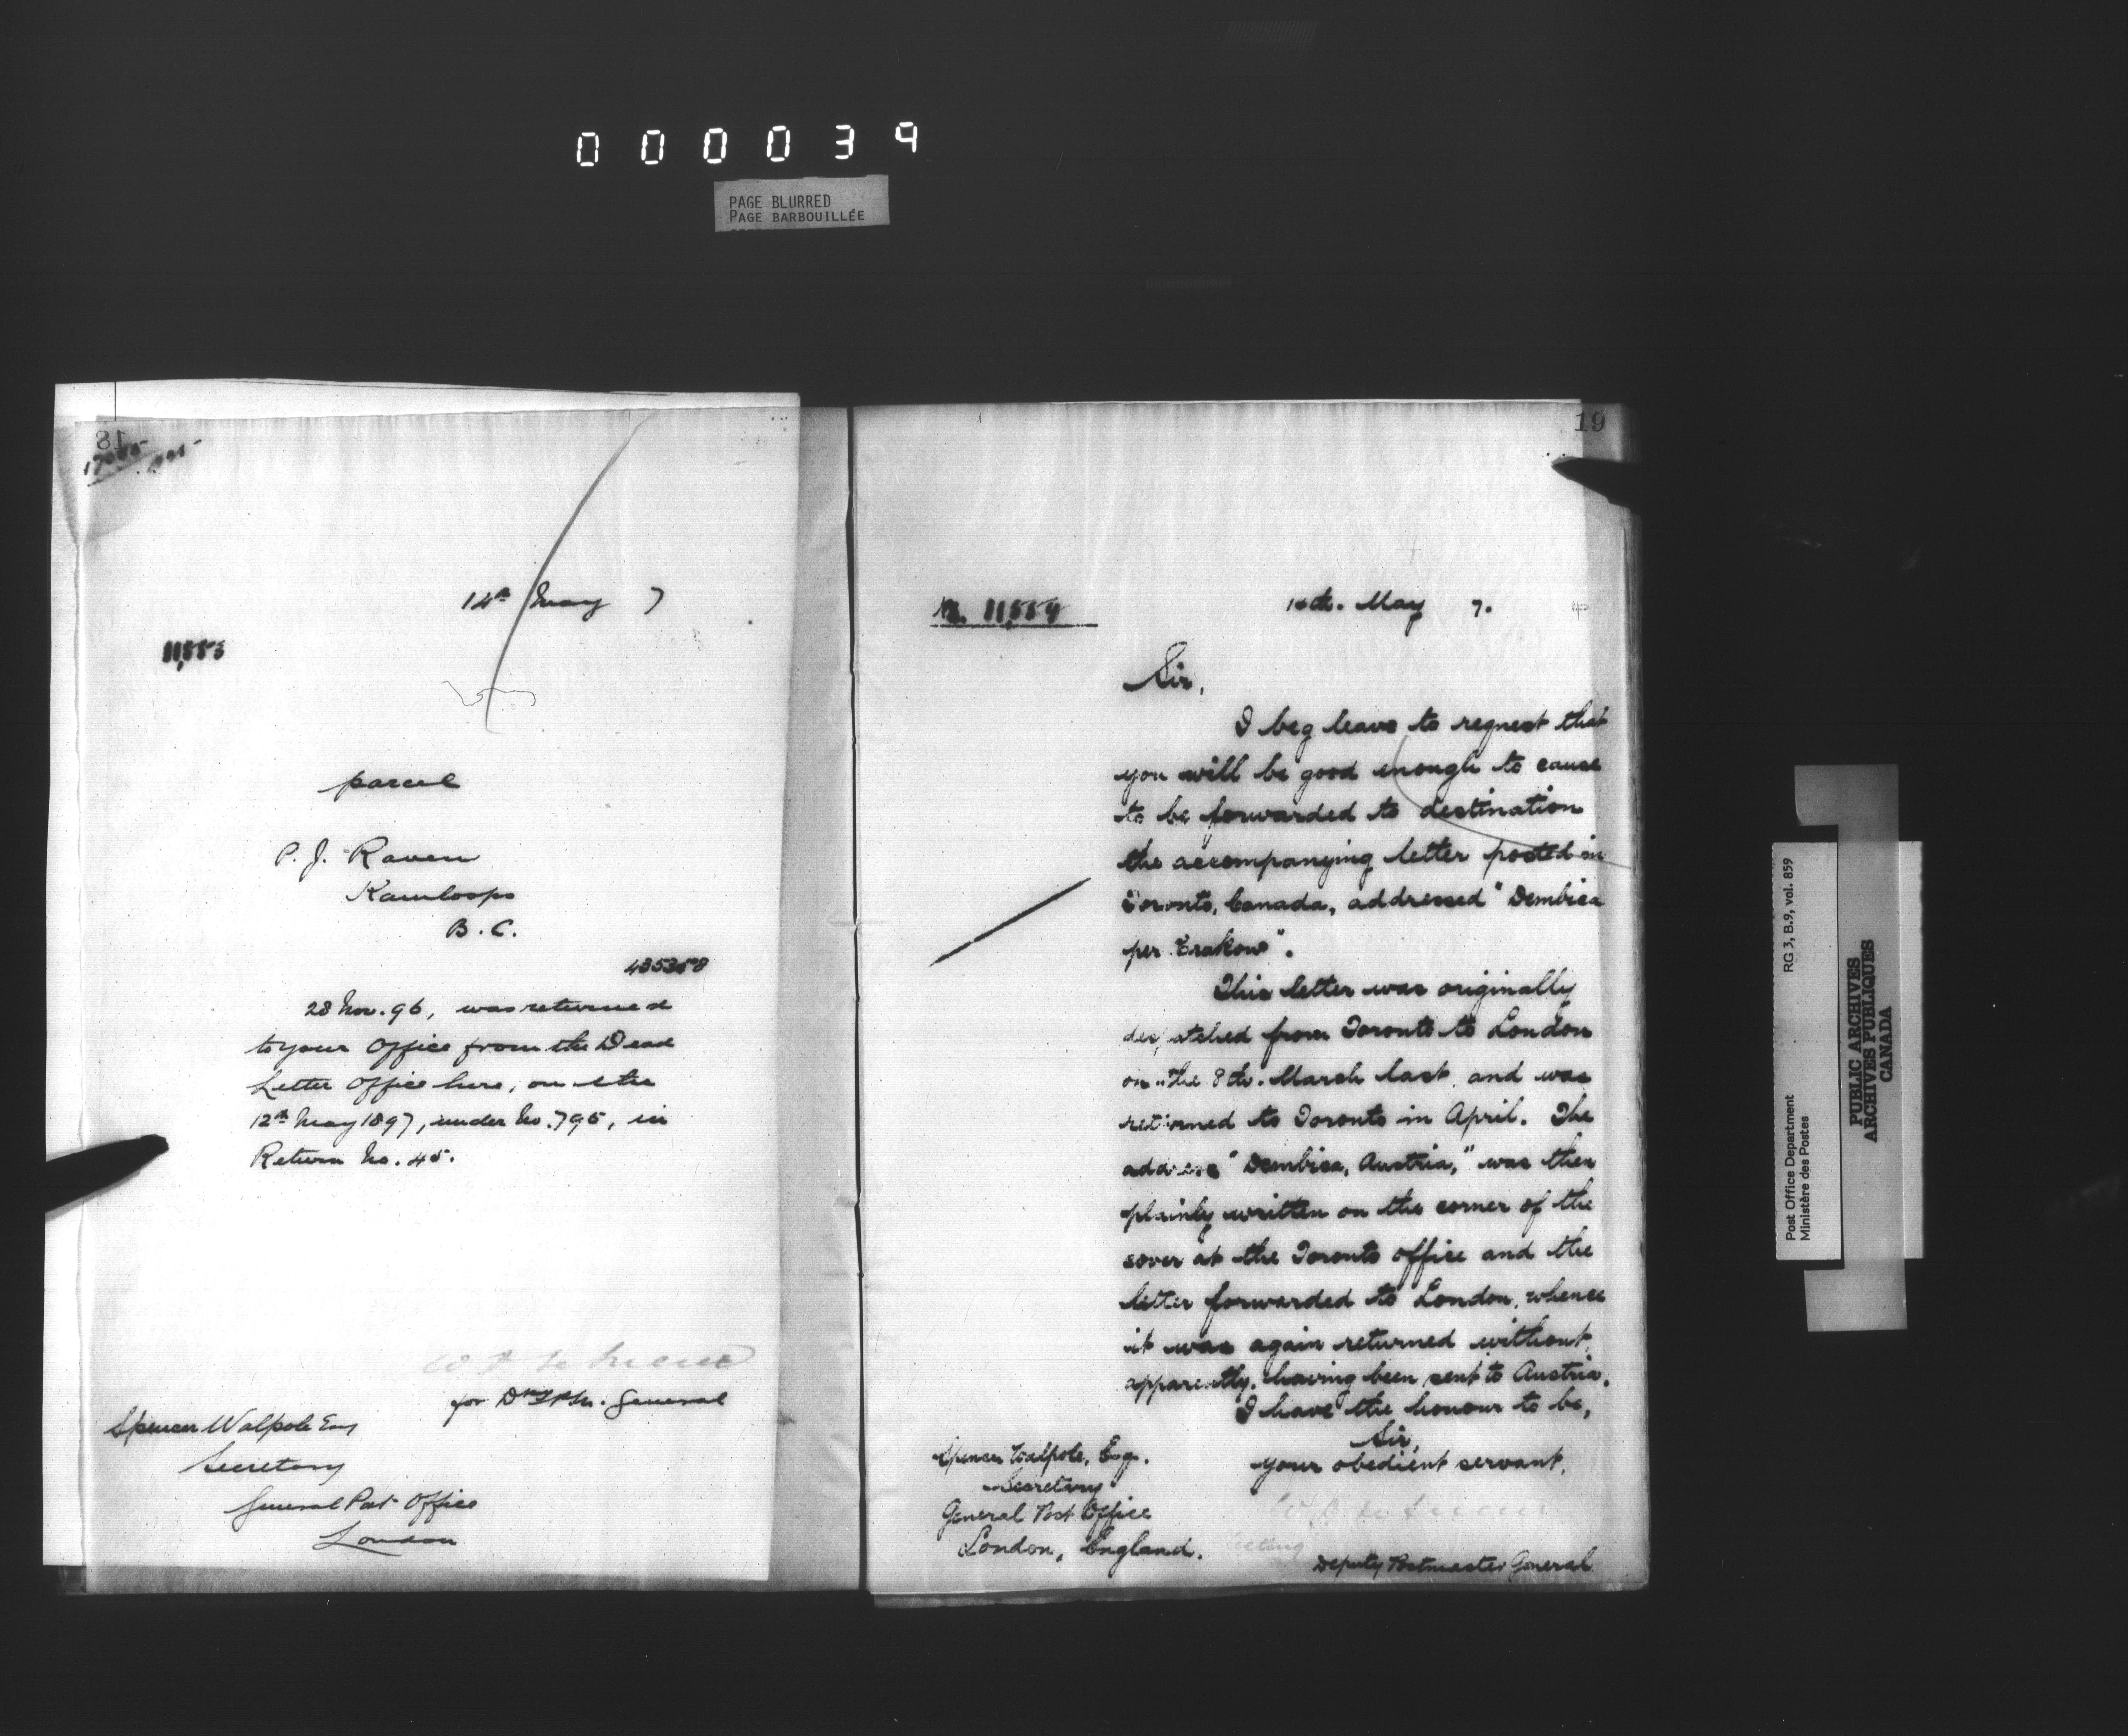 000039
PAGE BLURRED
PAGE BARBOUILLÉE
18
14th May 7
11,553
parcel
P. J. Raven
Kamloops
B. C.
28 Nov. 96, was returned
to your Office from the Dead
Letter Office here, on the
12th May 1897, under No. 795, in
Return No. 45.
for Dy. P. M. General
Spencer Walpole Esq
Secretary
General Post Office
London
19
No. 11,554
14th. May 7.
Sir,
I beg leave to request that
you will be good enough to cause
to be forwarded to destination
the accompanying letter posted in
Toronto, Canada, addressed "Dembica
per Krakow".
This letter was originally
despatched from Toronto to London
on the 8th. March last, and was
returned to Toronto in April. The
address "Dembica, Austria," was then
plainly written on the corner of the
cover at the Toronto office and the
letter forwarded to London, whence
it was again returned without,
apparently, having been sent to Austria.
I have the honour to be,
Sir,
your obedient servant,
Acting
Deputy Postmaster General
Spencer Walpole, Esq.
Secretary
General Post Office
London, England.
Post Office Department
Ministère des Postes
RG 3, B.9, vol. 859
PUBLIC ARCHIVES
ARCHIVES PUBLIQUES
CANADA